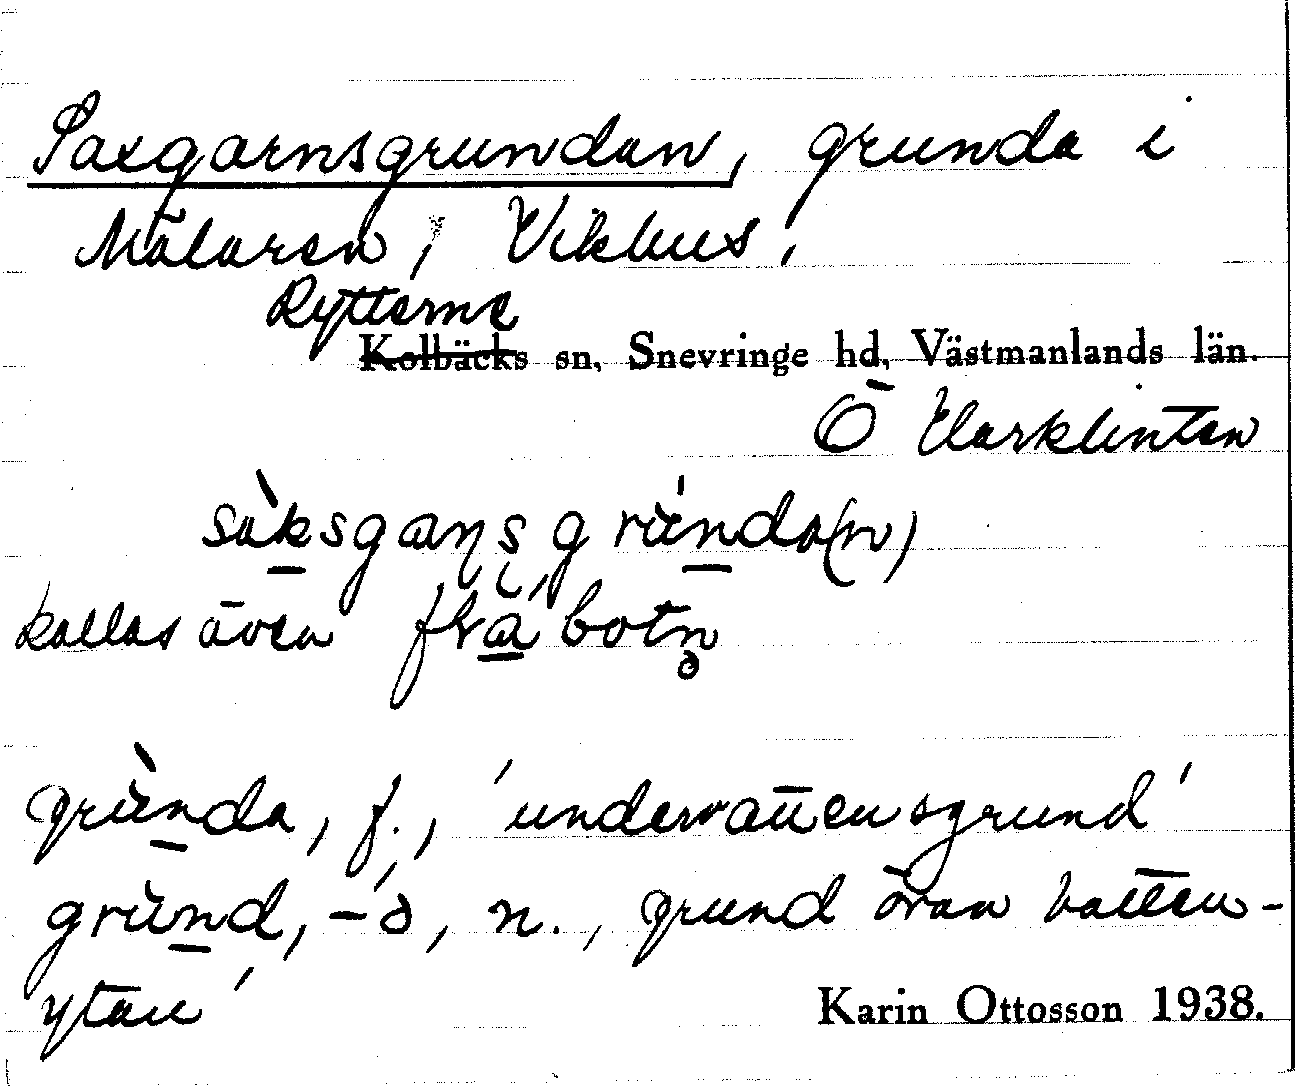 Saxgarnsgrundan, grunda i
Mälaren, Vikhus,
Rytterne
Kolbäcks sn, Snevringe hd, Västmanlands län.
Ö Harklinten
kallas även
grùnda, f., 'undervattensgrund'
grùnd, -ə, n., grund ovan vatten-
ytan'
Karin Ottosson 1938.